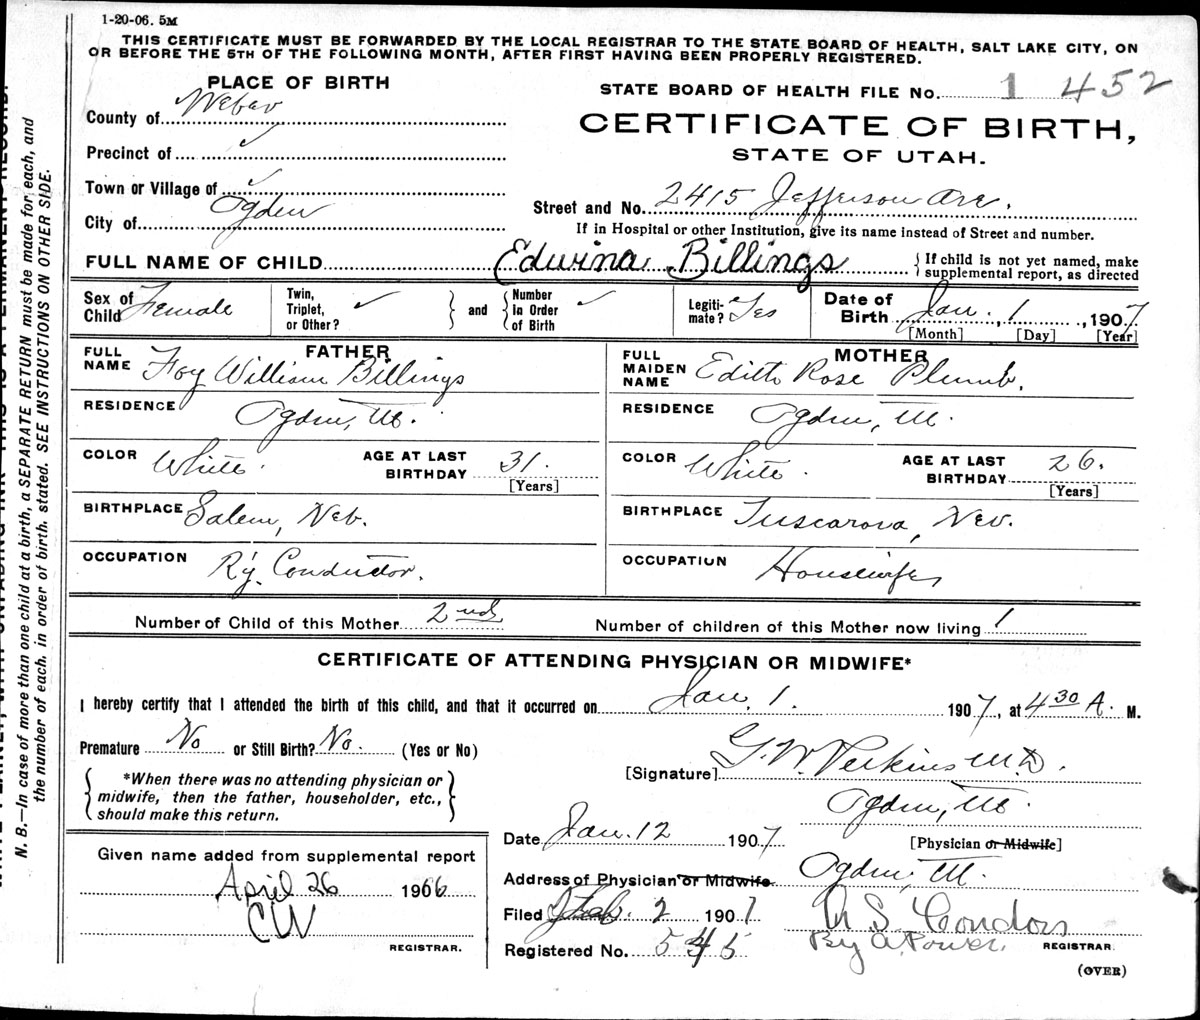 1-20-06. 5M
THIS CERTIFICATE MUST BE FORWARDED BY THE LOCAL REGISTRAR TO THE STATE BOARD OF HEALTH, SALT LAKE CITY, ON
OR BEFORE THE 5TH OF THE FOLLOWING MONTH, AFTER FIRST HAVING BEEN PROPERLY REGISTERED.
PLACE OF BIRTH
STATE BOARD OF HEALTH FILE No. 1 452
County of Weber
CERTIFICATE OF BIRTH,
Precinct of ✓
STATE OF UTAH.
Town or Village of ✓
City of Ogden
Street and No. 2415 Jefferson Ave.
If in Hospital or other Institution, give its name instead of Street and number.
FULL NAME OF CHILD Edwina Billings
{ If child is not yet named, make
supplemental report, as directed
Sex of Child Female
Twin, Triplet, or Other? ✓
and
Number In Order of Birth ✓
Legiti-mate? Yes
Date of Birth Jan. 1, 1907
[Month] [Day] [Year]
FATHER
FULL NAME Foy William Billings
MOTHER
FULL MAIDEN NAME Edith Rose Plumb.
RESIDENCE Ogden, Ut.
RESIDENCE Ogden, Ut.
COLOR White. AGE AT LAST BIRTHDAY 31. [Years]
COLOR White. AGE AT LAST BIRTHDAY 26. [Years]
BIRTHPLACE Salem, Neb.
BIRTHPLACE Tuscarora, Nev.
OCCUPATION Ry. Conductor.
OCCUPATION Housewife
Number of Child of this Mother 2nd
Number of children of this Mother now living 1
CERTIFICATE OF ATTENDING PHYSICIAN OR MIDWIFE*
I hereby certify that I attended the birth of this child, and that it occurred on Jan. 1. 1907, at 4 30 A. M.
Premature No or Still Birth? No. (Yes or No)
[Signature] G. W. Perkins M.D.
*When there was no attending physician or
midwife, then the father, householder, etc.,
should make this return.
Ogden, Ut.
Date Jan. 12 1907
[Physician or Midwife]
Given name added from supplemental report
April 26 1966
CW
REGISTRAR.
Address of Physician or Midwife. Ogden, Ut.
Filed Feb. 2 1907
Registered No. 545
By A. Power. REGISTRAR
(OVER)
N. B.—In case of more than one child at a birth, a SEPARATE RETURN must be made for each, and
the number of each, in order of birth, stated. SEE INSTRUCTIONS ON OTHER SIDE.